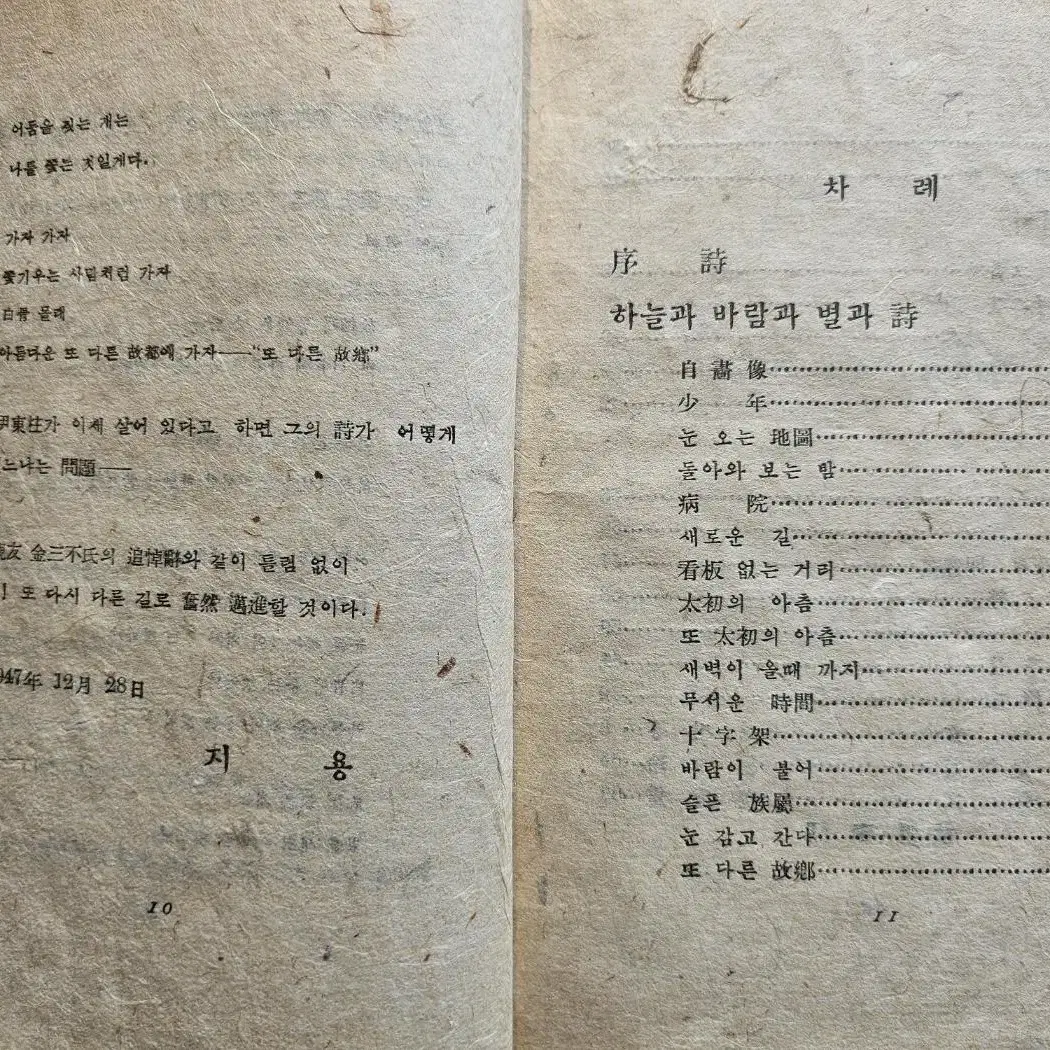 어둠을 짖는 개는
나를 쫓는 것일게다.
가자 가자
쫓기우는 사람처럼 가자
白骨 몰래
아름다운 또 다른 故鄕에 가자——“또 다른 故鄕”
東柱가 이제 살어 있다고 하면 그의 詩가 어떻게
느냐는 問題——
友 金三不氏의 追悼辭와 같이 틀림 없이
또 다시 다른 길로 奮然 邁進할 것이다.
947年 12月 28日
지 용
10
차 례
序 詩
하늘과 바람과 별과 詩
自畵像
少 年
눈 오는 地圖
돌아와 보는 밤
病 院
새로운 길
看板 없는 거리
太初의 아츰
또 太初의 아츰
새벽이 올때 까지
무서운 時間
十字架
바람이 불어
슬픈 族屬
눈 감고 간다
또 다른 故鄕
11